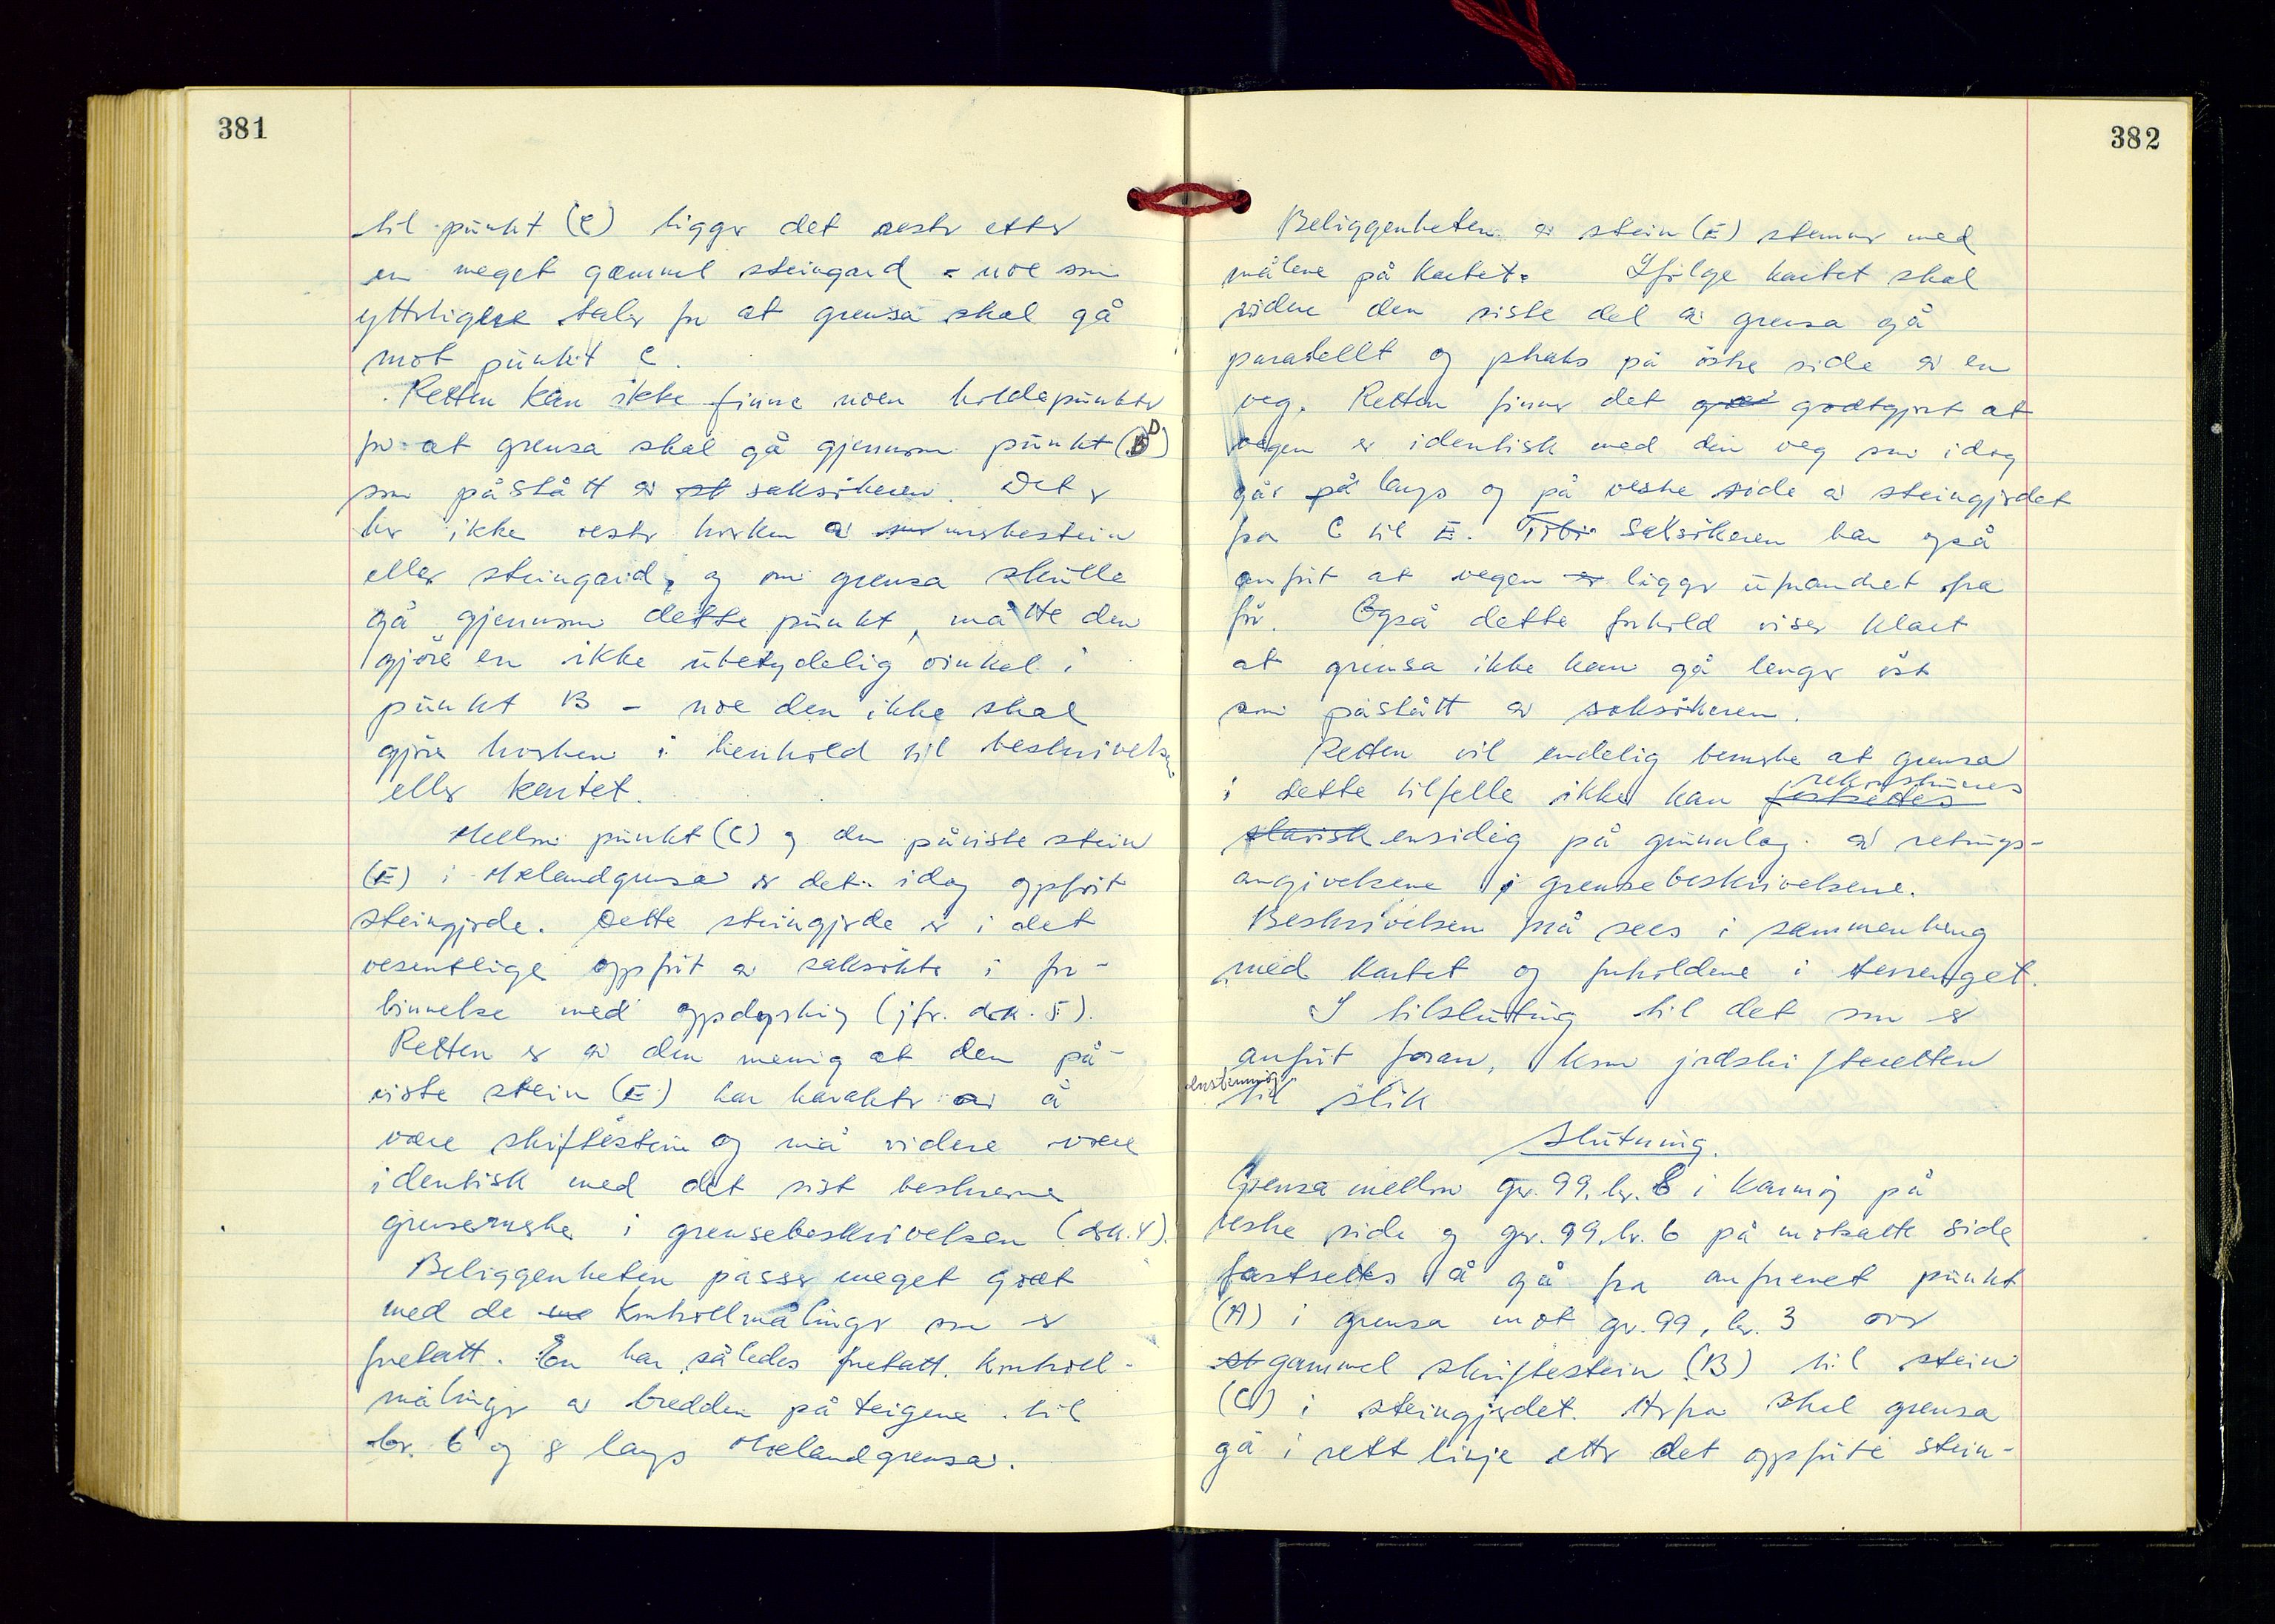 381
til punkt (C) ligger det rester etter
en meget gammel steingard - noe som
ytterligere taler for at grensa skal gå
mot punkt C.
Retten kan ikke finne noen holdepunkter
for at grensa skal gå gjennom punkt (D)
som påstått av st saksökeren. Det er
her ikke rester hverken av mer merkestein
eller steingard, og om grensa skulle
gå gjennom dette punkt, måtte den
gjöre en ikke ubetydelig vinkel i
punkt B - noe den ikke skal
gjöre hverken i henhold til beskrivelsen
eller kartet.
Mellom punkt (C) og den påviste stein
(E) i Mælandgrensa er det idag oppfört
steingjerde. Dette steingjerde er i det
vesentlige oppfört av saksökte i for-
binnelse med oppdyrking (jfr. dok. 5).
Retten er av den mening at den på-
viste stein (E) har karakter av å
være skiftestein og må videre være
identisk med det sist beskrevne
grensemerke i grensebeskrivelsen (dok. 4).
Beliggenheten passer meget godt
med de kontrollmålinger som er
foretatt. En har således foretatt kontroll-
målinger av bredden på teigene til
br. 6 og 8 langs Mælandgrensa.
382
Beliggenheten av stein (E) stemmer med
målene på kartet. Ifölge kartet skal
videre den siste del av grensa gå
parallellt og straks på östre side av en
veg. Retten finner det godtgjort at
vegen er identisk med den veg som idag
går på langs og på vestre side av steingjerdet
fra C til E. Saksökeren har også
anfört at vegen er ligger uforandret fra
för. Også dette forhold viser klart
at grensa ikke kan gå lenger öst
som påstått av saksökeren.
Retten vil endelig bemerke at grensa
rekonstrueres
i dette tilfelle ikke kan fastsettes
slavisk ensidig på grunnlag av retnings-
angivelsene i grensebeskrivelsene.
Beskrivelsen må sees i sammenheng
med kartet og forholdene i terrenget.
I tilslutning til det som er
anfört foran, kom jordskifteretten
enstemmig
til slik
Slutning.
Grensa mellom gr. 99, br. 8 i Karmöy på
vestre side og gr. 99, br. 6 på motsatte side
fastsettes å gå fra omforenet punkt
(A) i grensa mot gr. 99, br. 3 over
st gammel skiftestein (B) til stein
(C) i steingjerdet. Herfra skal grensa
gå i rett linje etter det oppförte stein-